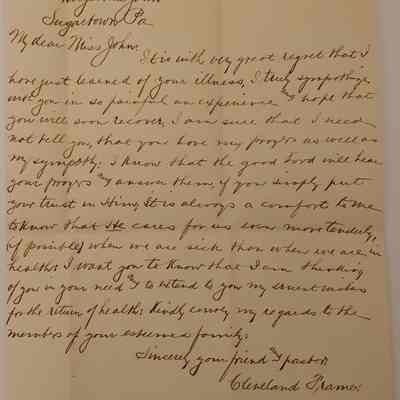 Sugartown Pa
My dear Miss John,
It is with very great regret that I
have just learned of your illness, I truly sympathize
with you in so painful an experience & I hope that
you will soon recover. I am sure that I need
not tell you, that you have my prayers as well as
my sympathy: I know that the good Lord will hear
your prayers & answer them, if you simply put
your trust in Him, It is always a comfort to me
to know that He cares for us even more tenderly,
if possible, when we are sick than when we are in
health: I want you to know that I am thinking
of you in your need & to extend to you my ernest wishes
for the return of health: Kindly convey my regards to the
members of your esteemed family:
Sincerely your friend & pastor
Cleveland